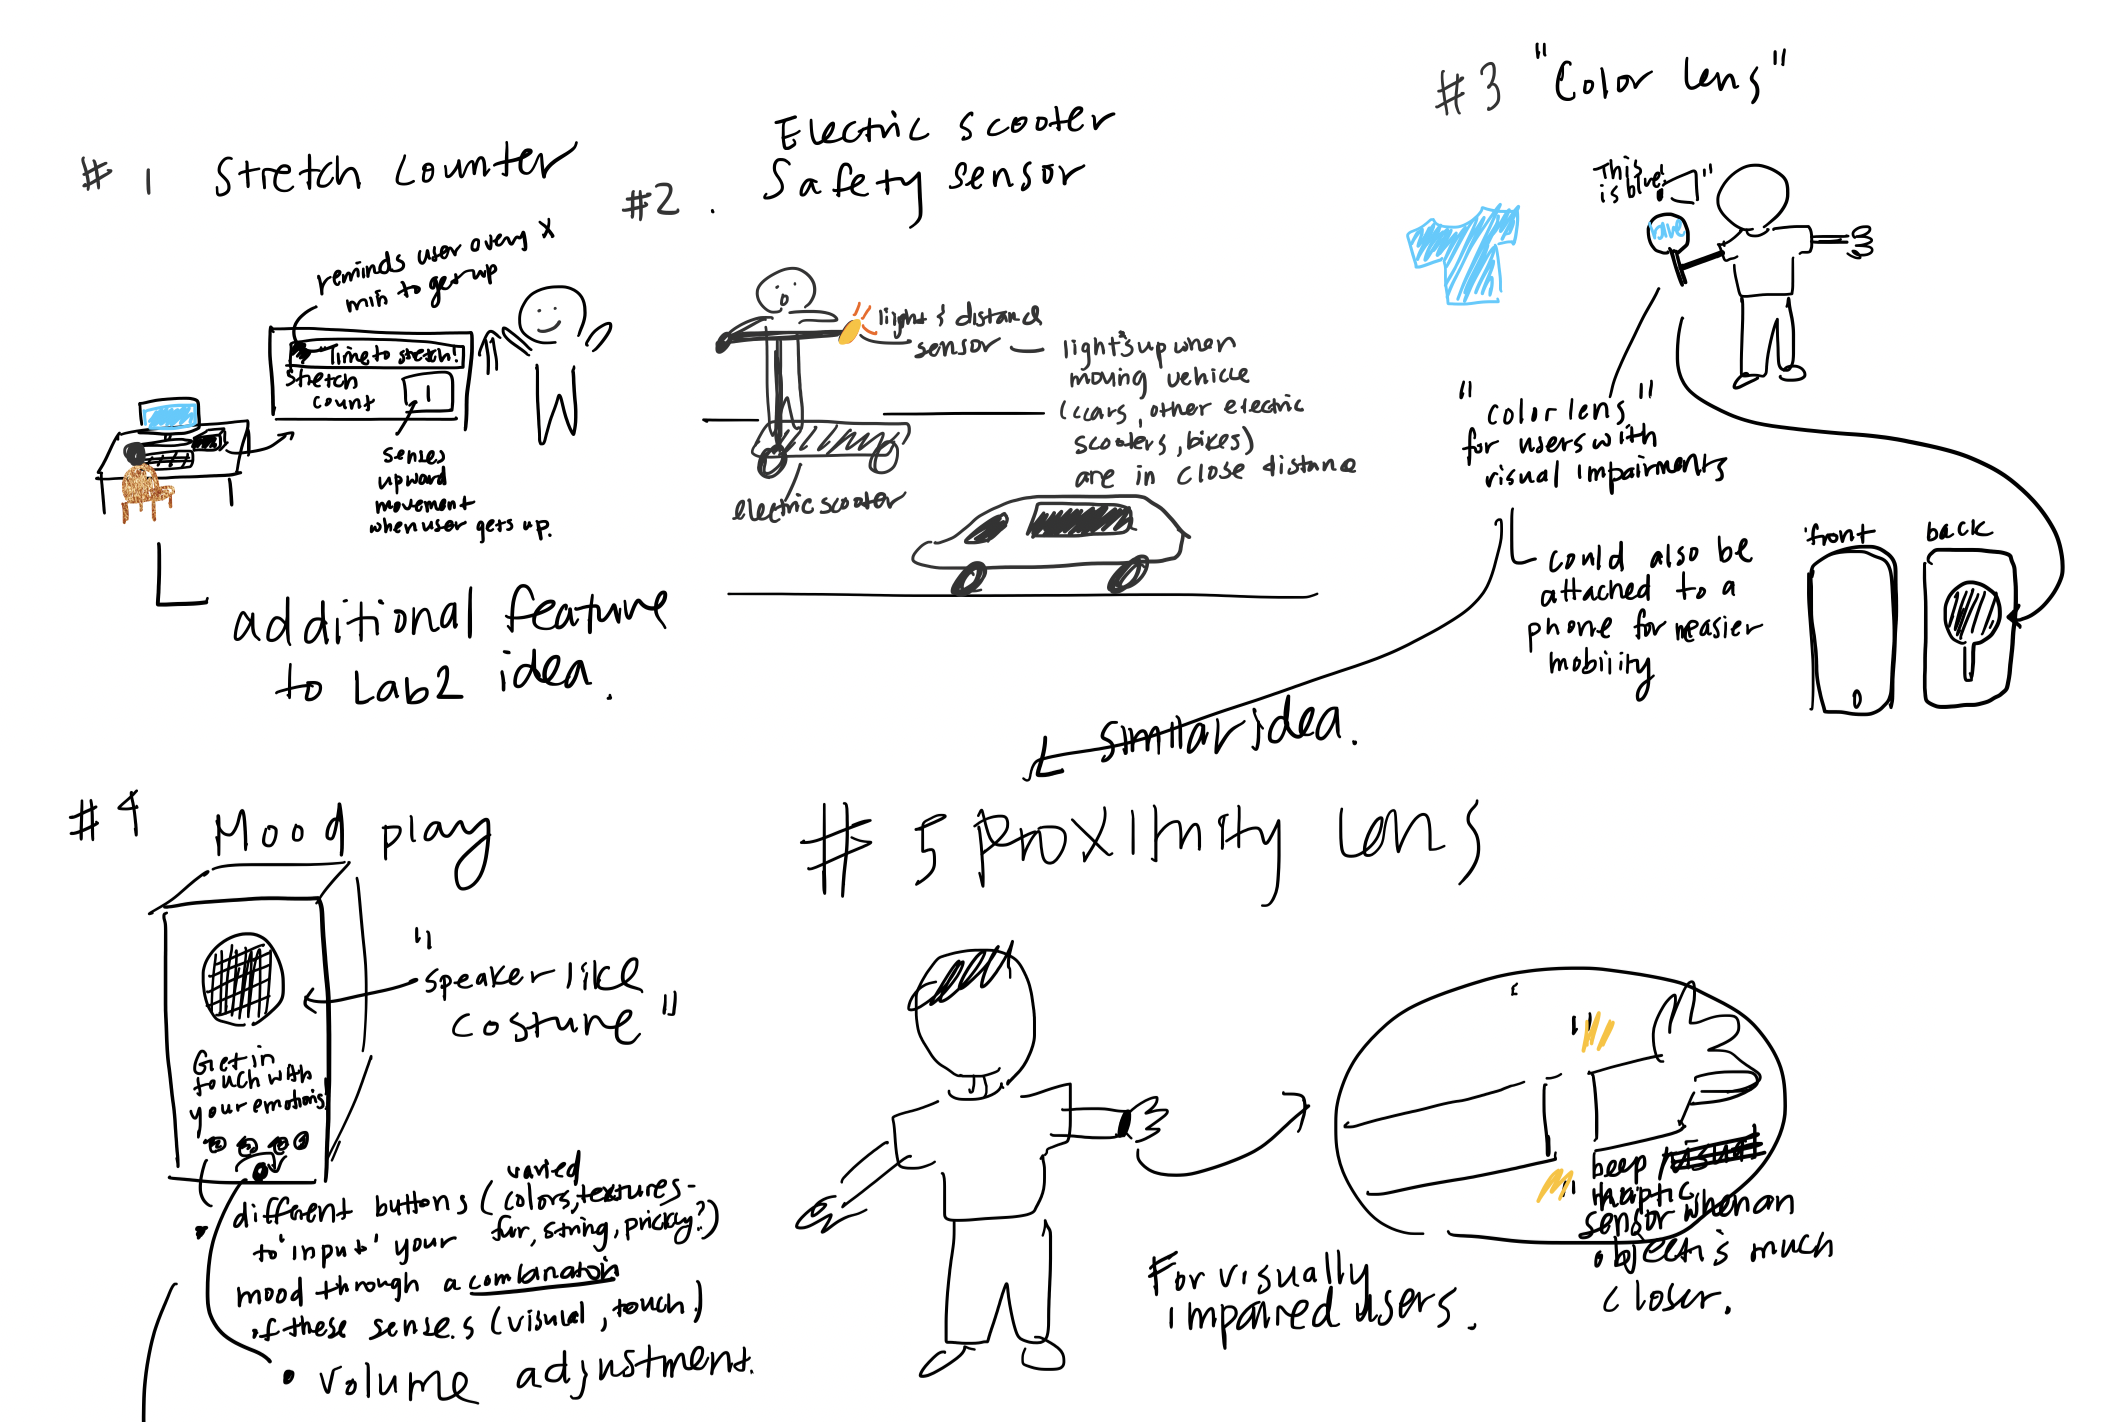 # 1 Stretch Counter
reminds user every X
min to get up
"Time to stretch!"
stretch
count
1
senses
upward
movement
when user gets up.
additional feature
to Lab2 idea.
#2.
Electric scooter
Safety sensor
light & distance
sensor
lights up when
moving vehicle
(cars, other electric
scooters, bikes)
are in close distance
electric scooter
#3 "Color lens"
"This
is blue!"
blue
"color lens"
for users with
visual impairments
could also be
attached to a
phone for easier
mobility
front
back
similar idea.
#4 Mood play
"speaker like
costure"
Get in
touch with
your emotions!
• different buttons (varied
colors, textures-
fur, string, prickly?)
to 'input' your
mood through a combination
of these senses (visual, touch)
• volume adjustment.
#5 Proximity lens
For visually
impaired users.
"beep
haptic
sensor when an
object is much
closer.